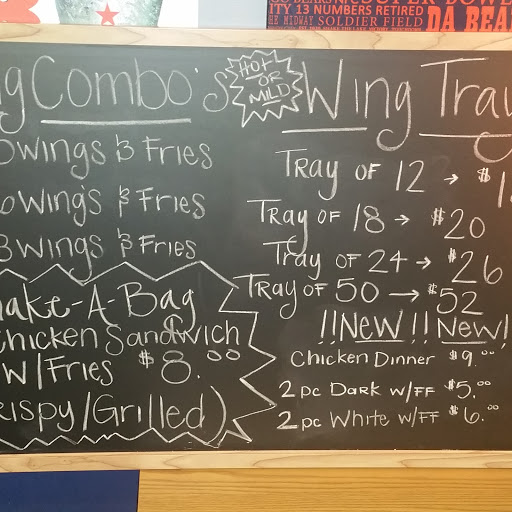 SUPER BOWL
ITY 13 NUMBERS RETIRED
HE MIDWAY SOLDIER FIELD DA BEA
g Combo's
HOT OR MILD
Wing Tray
wings & Fries
wings & Fries
wings & Fries
ake-A-Bag
Chicken Sandwich
w/Fries $8.00
rispy/Grilled)
Tray of 12 → $1
Tray of 18 → $20
Tray of 24 → $26
Tray of 50 → $52
!!New!! New!
Chicken Dinner $9.00
2 pc Dark w/FF $5.00
2 pc White w/FF $6.00